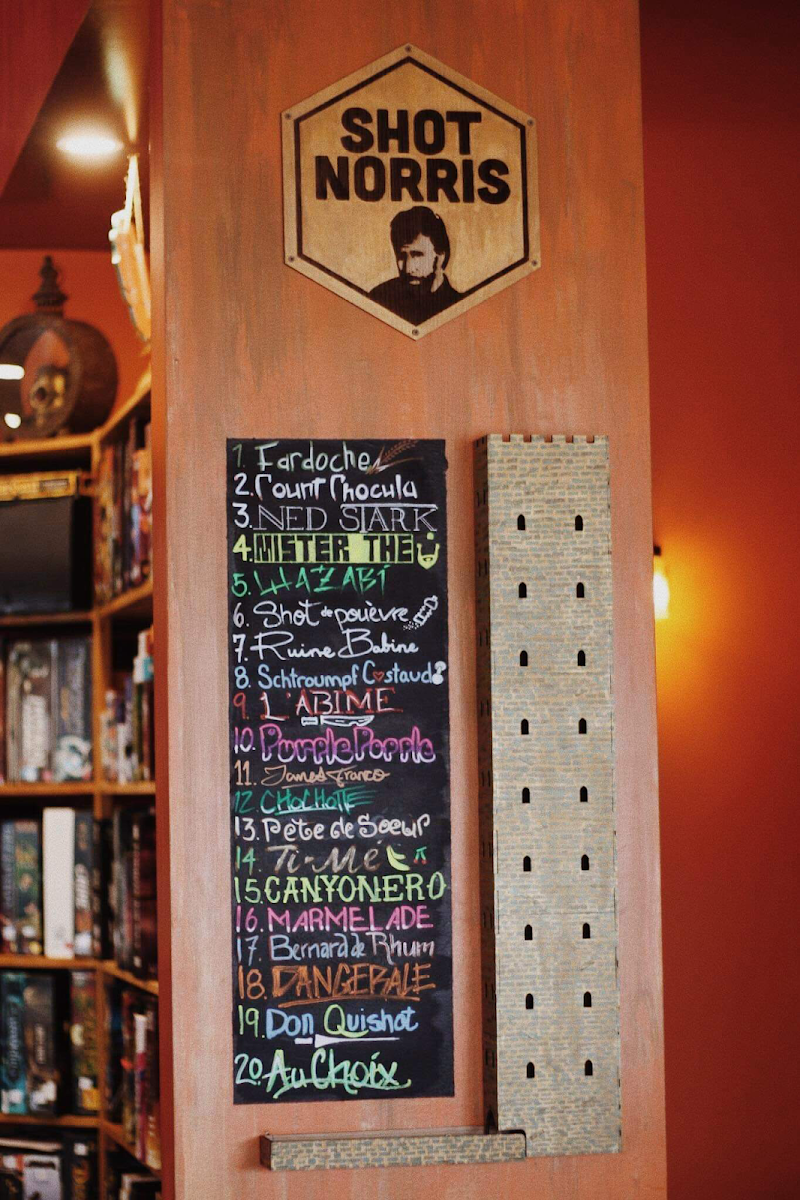 SHOT
NORRIS
1. Fardoche
2. Count Chocula
3. NED STARK
4. MISTER THE
5. WAZABI
6. Shot de pouèvre
7. Ruine Babine
8. Schtroumpf Costaud
9. L'ABIME
10. Purple Popple
11. James Franco
12. CHOCHOTTE
13. Pète de Soeur
14. Ti-Mé
15. CANYONERO
16. MARMELADE
17. Bernard de Rhum
18. DANGERALE
19. Don Quishot
20. Au Choix